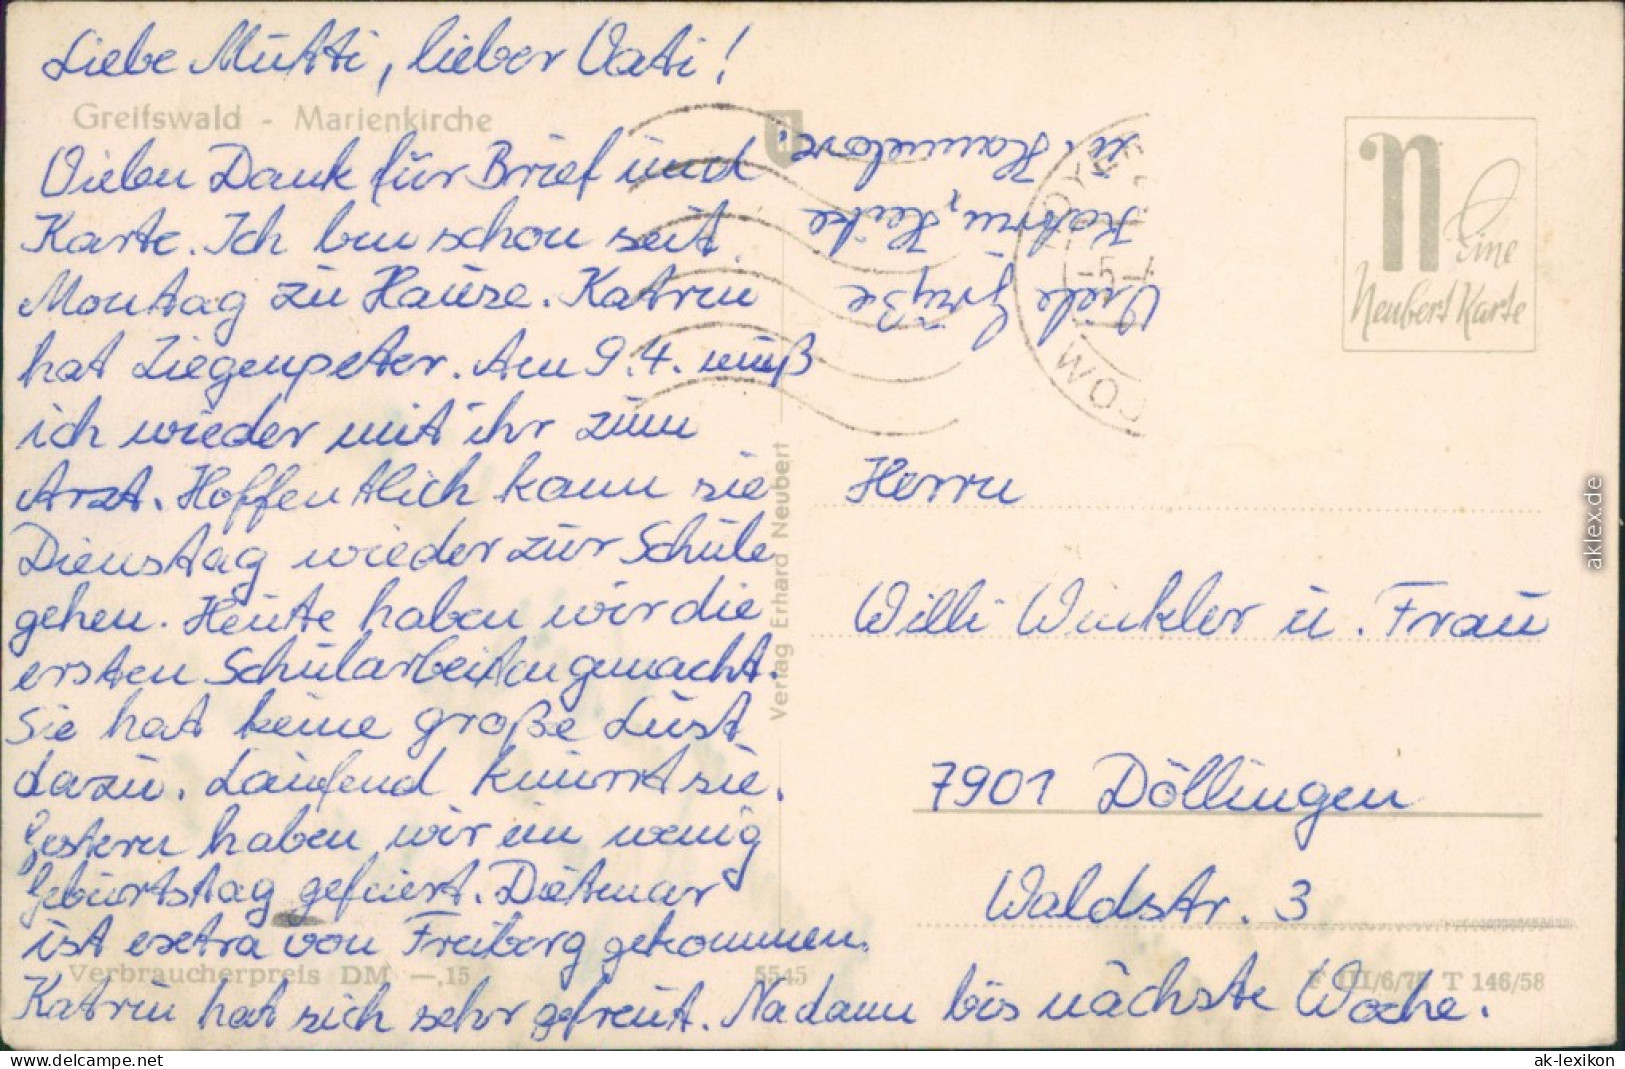 Liebe Mutti, lieber Vati!
Greifswald - Marienkirche
Vielen Dank für Brief und
Karte. Ich bin schon seit
Montag zu Hause. Katrin
hat Ziegenpeter. Am 9.4. muß
ich wieder mit ihr zum
Arzt. Hoffentlich kann sie
Dienstag wieder zur Schule
gehen. Heute haben wir die
ersten Schularbeiten gemacht.
Sie hat keine große Lust
dazu. Laufend knurrt sie.
Gestern haben wir ein wenig
Geburtstag gefeiert. Dietmar
ist extra von Freiberg gekommen.
Katrin hat sich sehr gefreut. Na dann bis nächste Woche.
Viele Grüße
Katrin, Heike
u. Hannelore
Verbraucherpreis DM —,15
5545
F III/6/75 T 146/58
Verlag Erhard Neubert
n
n
Eine
Neubert Karte
-5.-4
Herrn
Willi Winkler u. Frau
7901 Döllingen
Waldstr. 3
aklex.de
www.delcampe.net
ak-lexikon